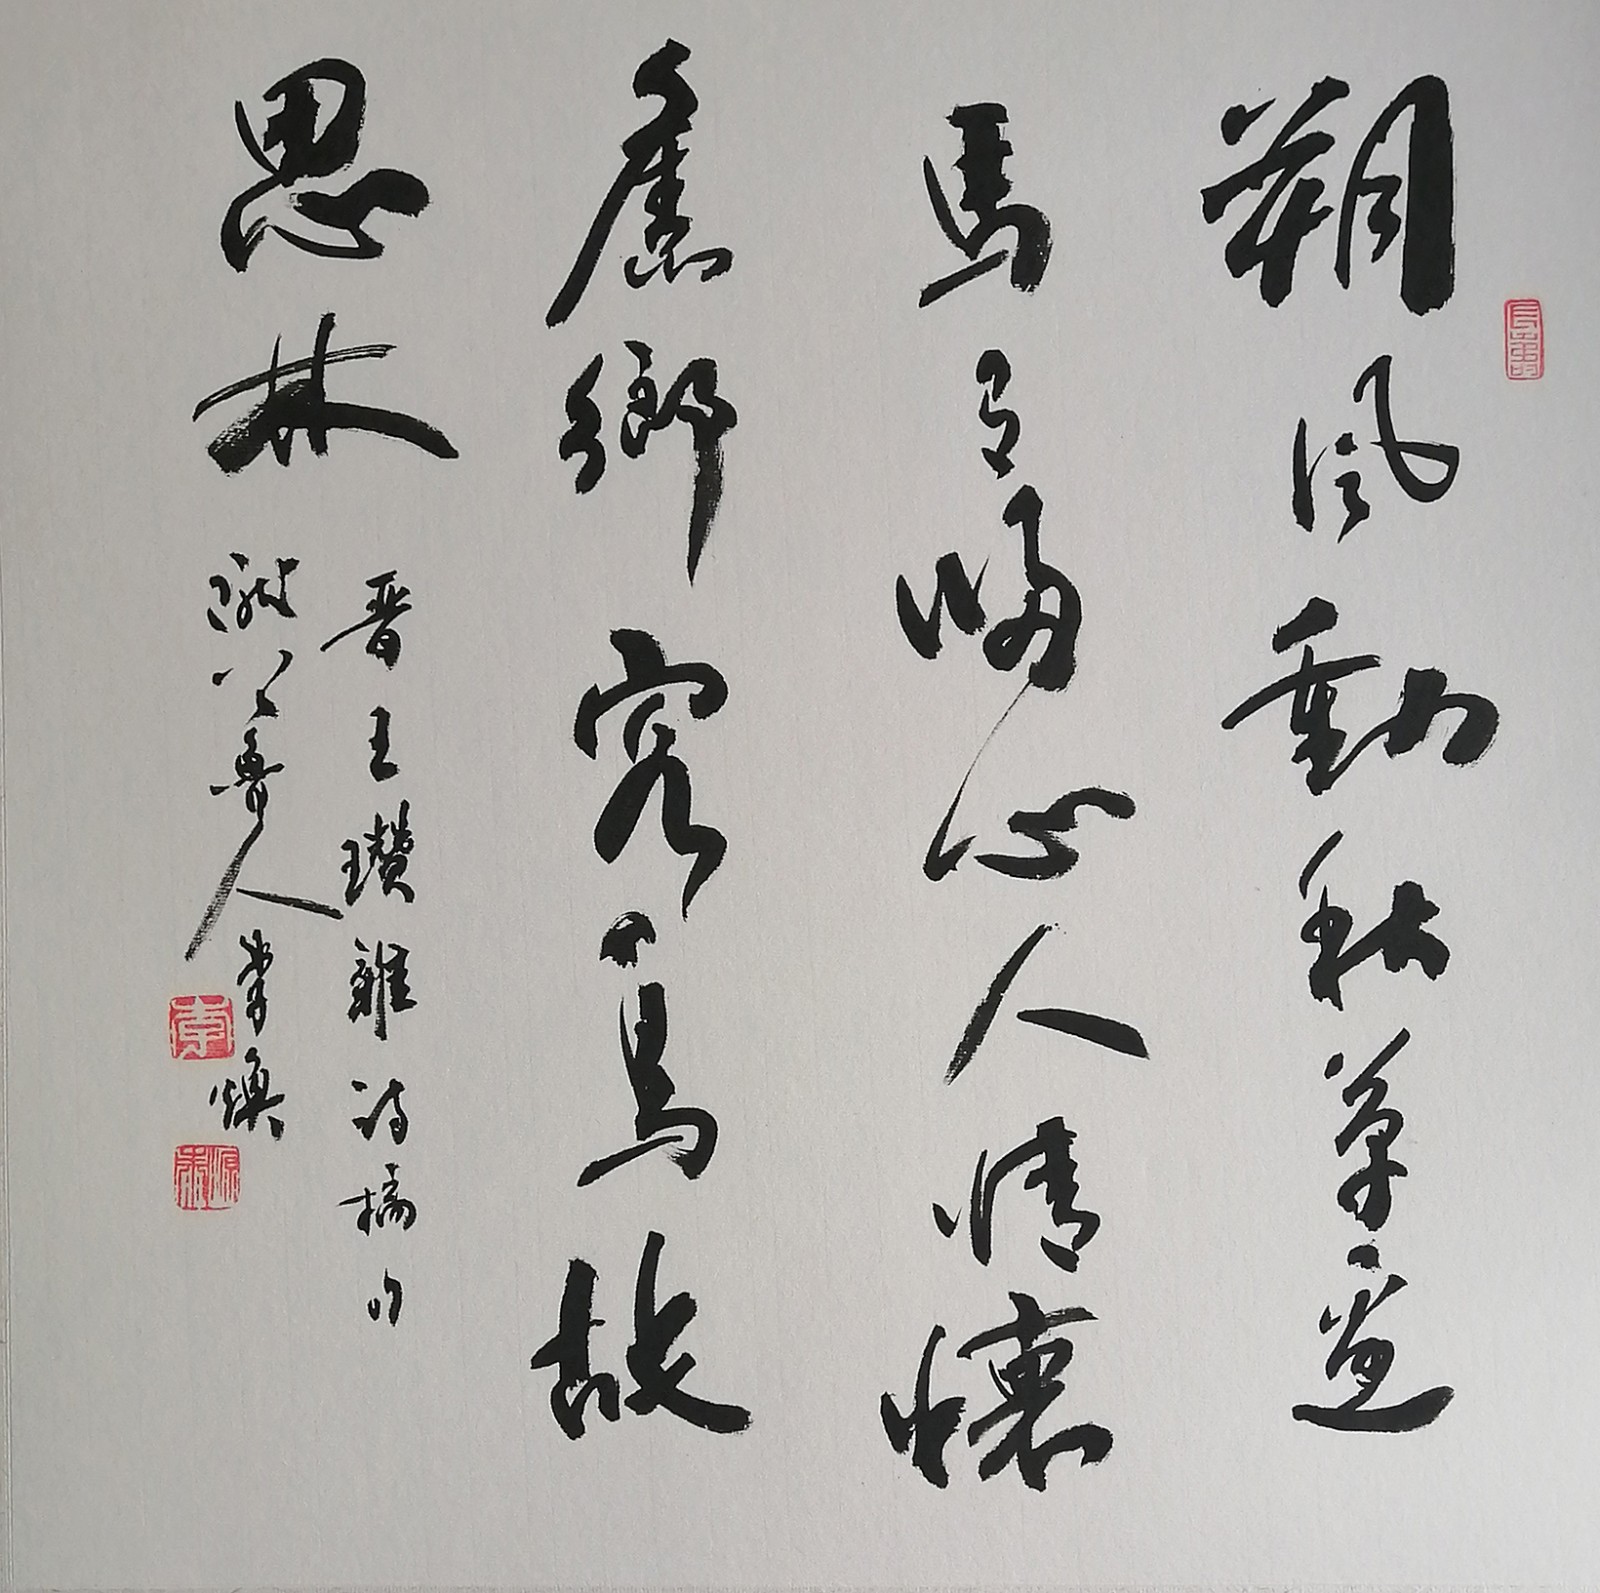 朔風動秋草邊
馬有歸心人情懷
舊鄉客鳥
故
思林
晋王瓚雜詩摘句
人